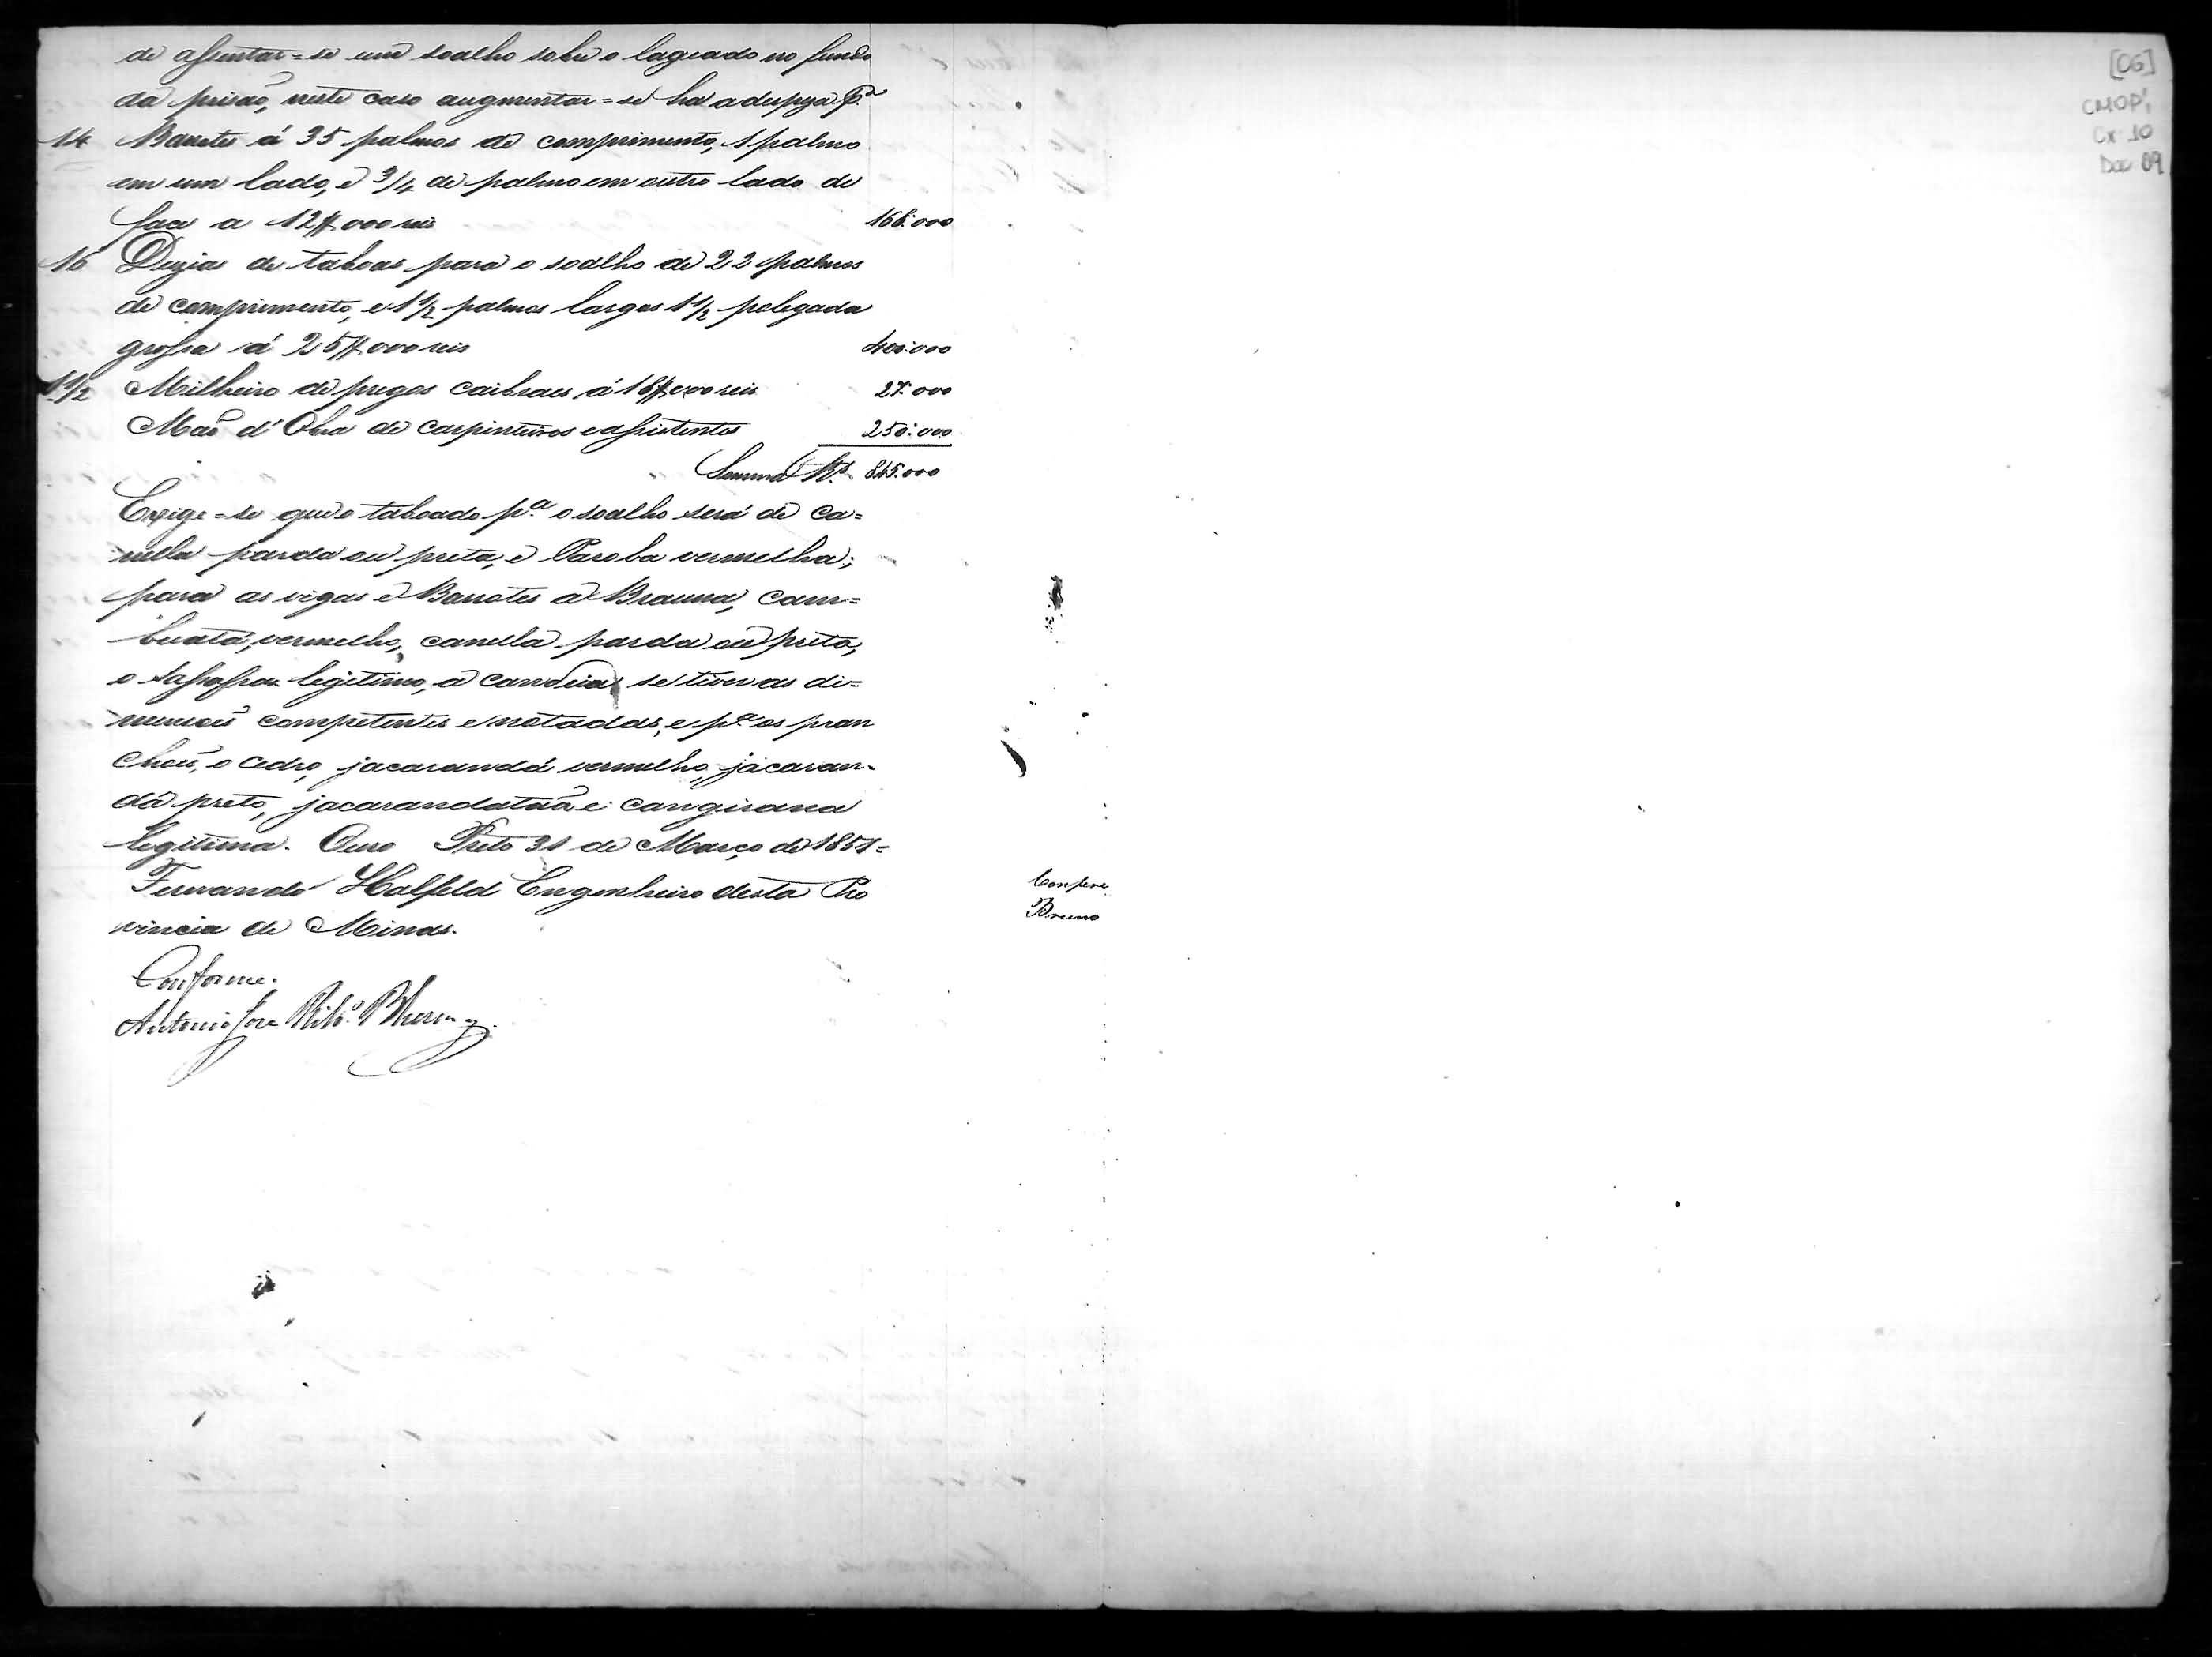 de assentar=se um soalho sobre o lageado no fundo
da prisaõ, neste caso augmentar=se ha a despeza P.ª
14 Barrotes á 35 palmos de comprimento, 1 palmo
em um lado, e 3/4 de palmo em outro lado de
face a 12$000 reis 168:000
16 Duzias de taboas para o soalho de 22 palmos
de comprimento, e 1 1/2 palmos largos 1 1/2 polegada
grossa á 25$000 reis 400:000
1 1/2 Milheiro de pregos caibraes á 18$000 reis 27:000
Maõ d'Obra de carpinteiros e assistentes 250:000
Somma Rs. 845:000
Exige=se que o taboado p.ª o soalho será de ca=
nella parda ou preta, e Paroba vermelha;
para as vigas e Barrotes a Brauna, cam=
buatá, vermelho, canella parda ou preta,
o Sassafras legitimo, a candeia se tiver as di=
mensoẽs competentes e notadas, e p.ª os pran
choẽs, o Cedro, jacarandá vermelho, jacaran=
dá preto, jacarandatãa e cangirana
legitima. Ouro Preto 31 de Março de 1851=
Fernando Halfeld Engenheiro desta Pro
vincia de Minas.
Conforme.
Antonio Jose Ribº. Bhering.
Confere
Bruno
[06]
CMOP,
Cx 10
Doc 09